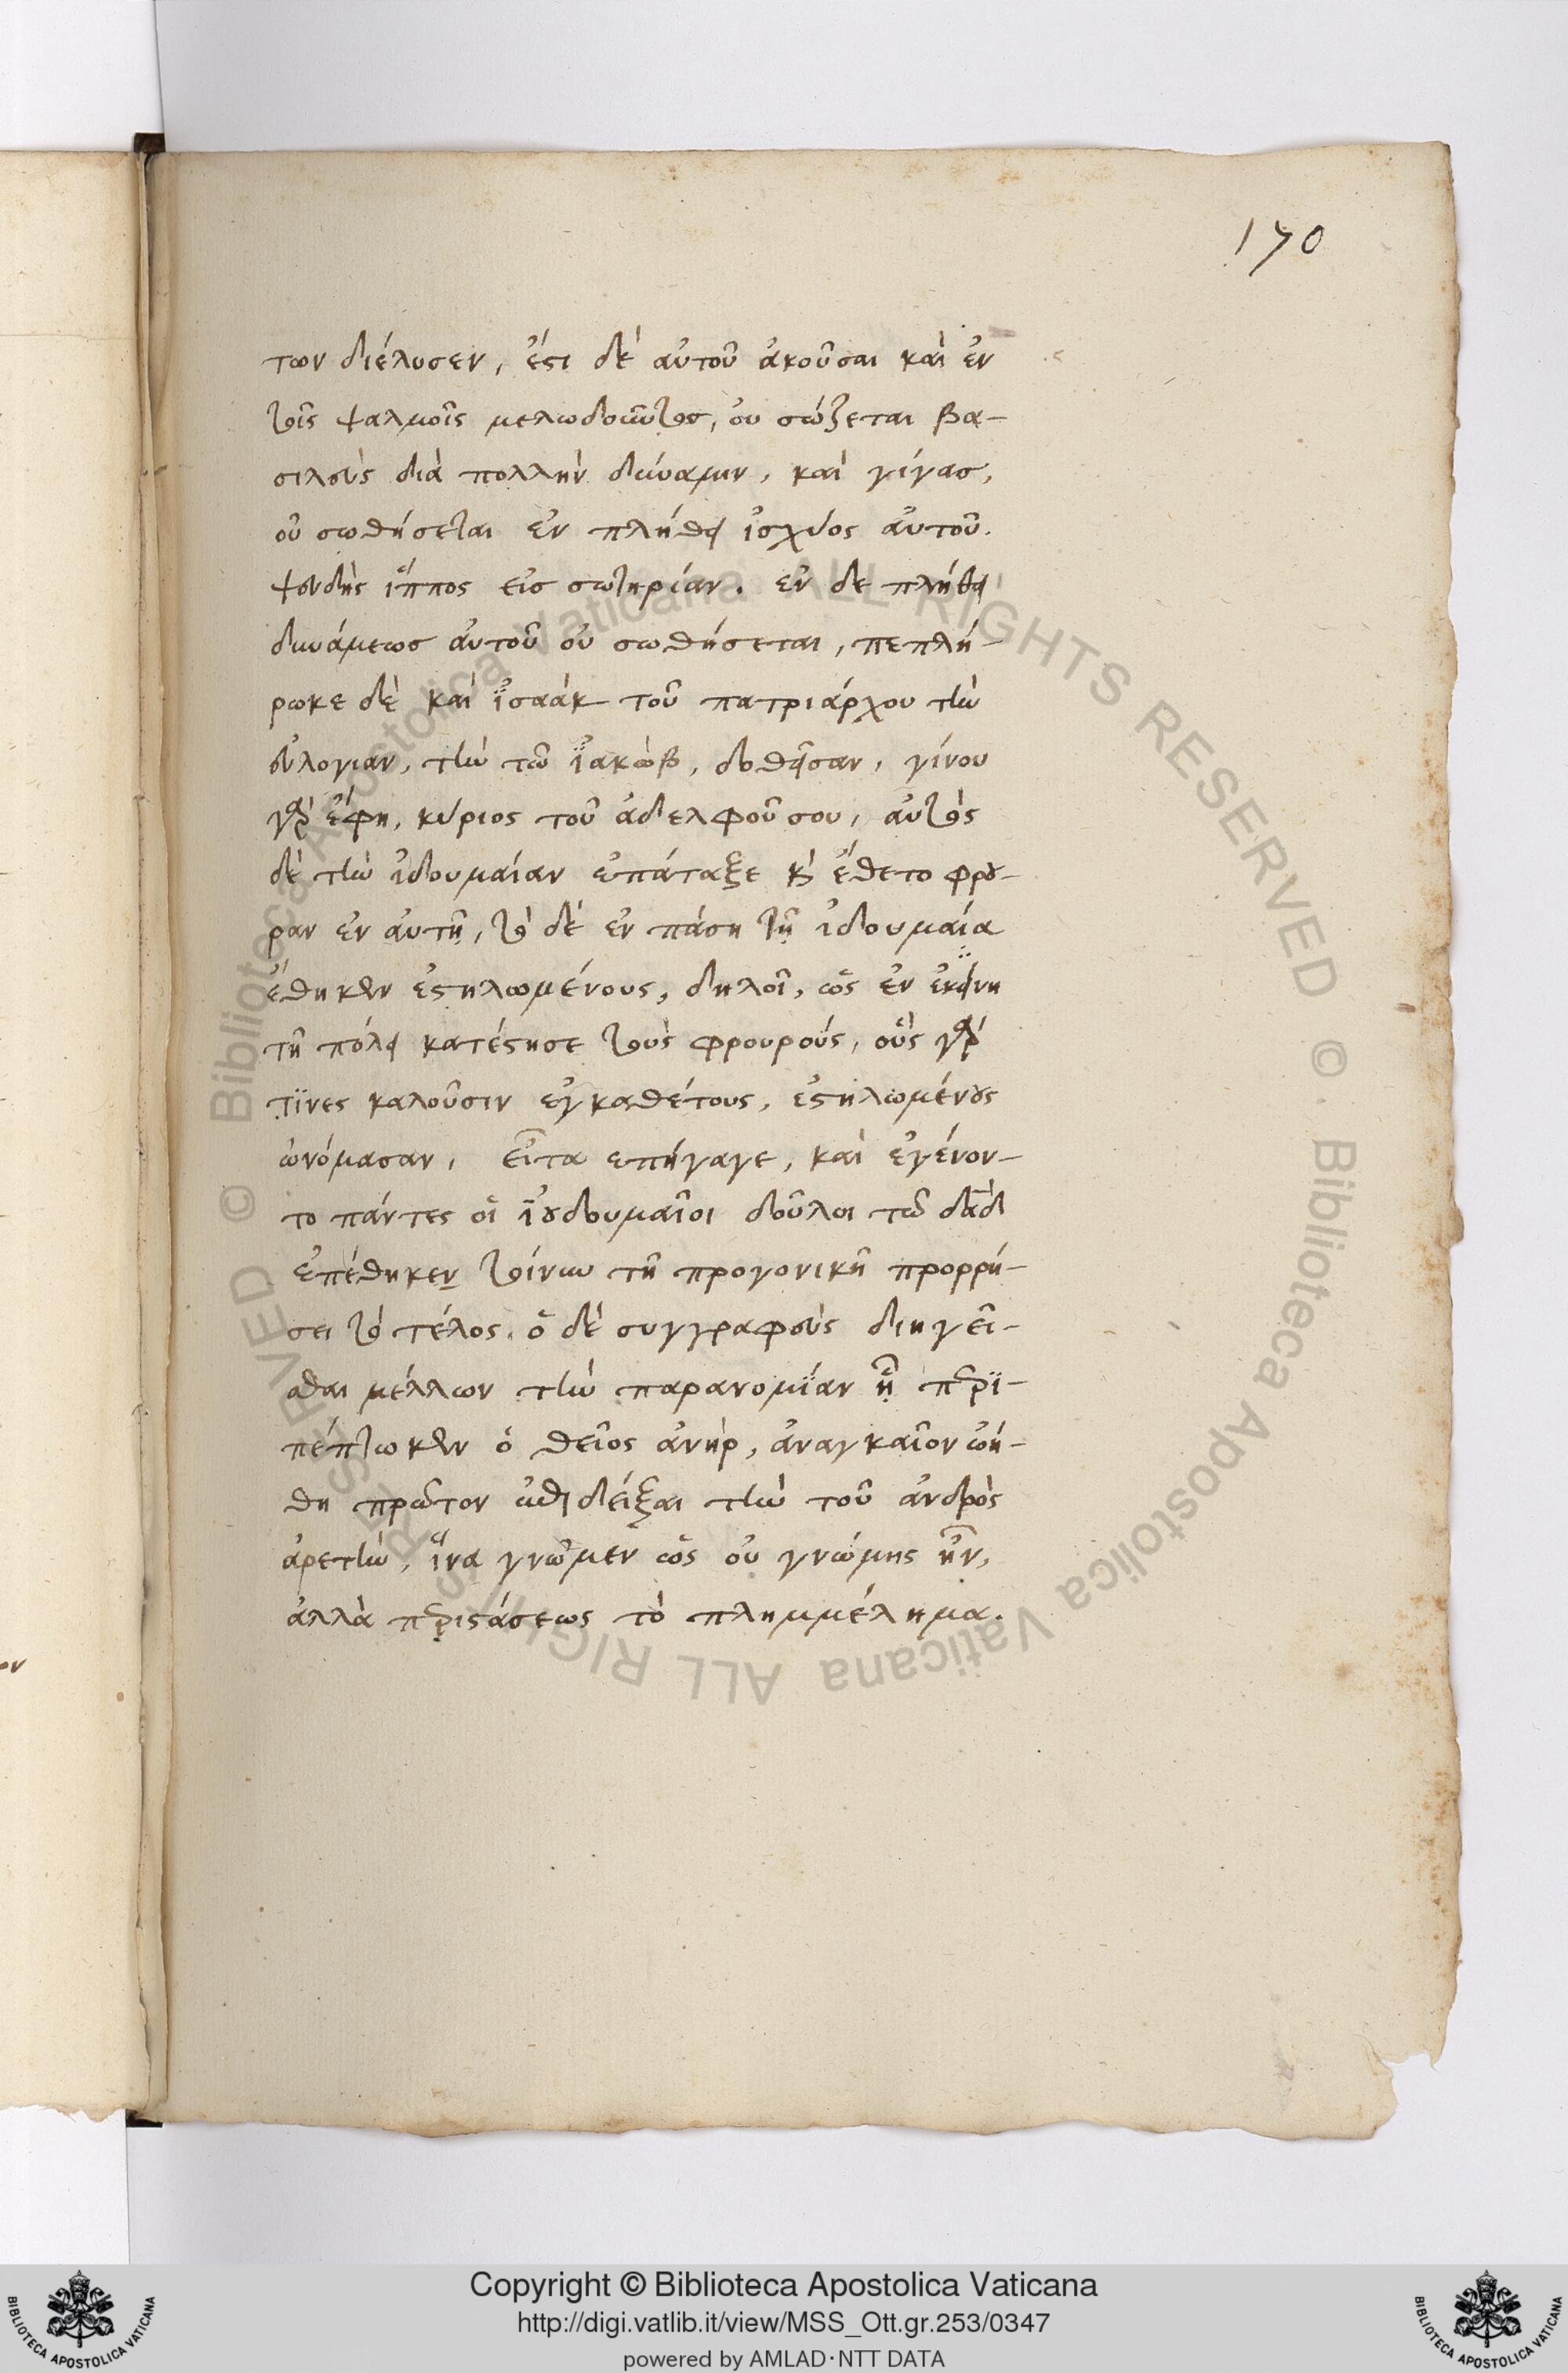 170
των διέλυσεν, ἔστι δὲ αὐτοῦ ἀκοῦσαι καὶ ἐν
τοῖς ψαλμοῖς μελωδοῦντος, οὐ σώζεται βα-
σιλεὺς διὰ πολλὴν δύναμιν, καὶ γίγας,
οὐ σωθήσεται ἐν πλήθει ἰσχύος αὐτοῦ.
ψευδὴς ἵππος εἰς σωτηρίαν. ἐν δε πλήθει
δυνάμεως αὐτοῦ οὐ σωθήσεται, πεπλή-
ρωκε δὲ καὶ ἰ̈σαὰκ τοῦ πατριάρχου τὴν
εὐλογιαν, τὴν τῶ ἰ̈ακὼβ, δοθεῖσαν, γίνου
γὰρ ἔφη, κύριος τοῦ ἀδελφοῦ σου, αὐτὸς
δὲ τὴν ἰδουμαίαν ἐπάταξε κ̀ ἔθετο φρου-
ραν ἐν αὐτῆ, τὸ δὲ ἐν πάση τῆ ἰδουμαία
ἔθηκεν ἐστηλωμένους, δηλοῖ, ὡς ἐν ἐκείνη
τῆ πόλει κατέστησε τοὺς φρουρούς, οὓς γάρ
τϊνες καλοῦσιν ἐγκαθέτους, ἐστηλωμένους
ὠνόμασαν, εἶτα επήγαγε, καὶ ἐγένον-
το πάντες οἱ ἰ̈ουδουμαῖοι δοῦλοι τῶ δαδ
ἐπέθηκεν τοίνυν τῆ προγονικῆ προρρή-
σει τὸ τέλος. ὁ δὲ συγγραφεὺς διηγεῖ-
σθαι μέλλων τὴν παρανομΐαν ἧ περϊ-
πέπτωκεν ὁ θεῖος ἀνὴρ, ἀναγκαῖον ὠή-
θη πρῶτον ἐπιδεῖξαι τὴν τοῦ ἀνδρὸς
ἀρετὴν, ἵνα γνῶμεν ὡς οὐ γνώμης ἦν,
ἀλλὰ περιστάσεως τὸ πλημμέλημα.
Copyright © Biblioteca Apostolica Vaticana
http://digi.vatlib.it/view/MSS_Ott.gr.253/0347
powered by AMLAD·NTT DATA